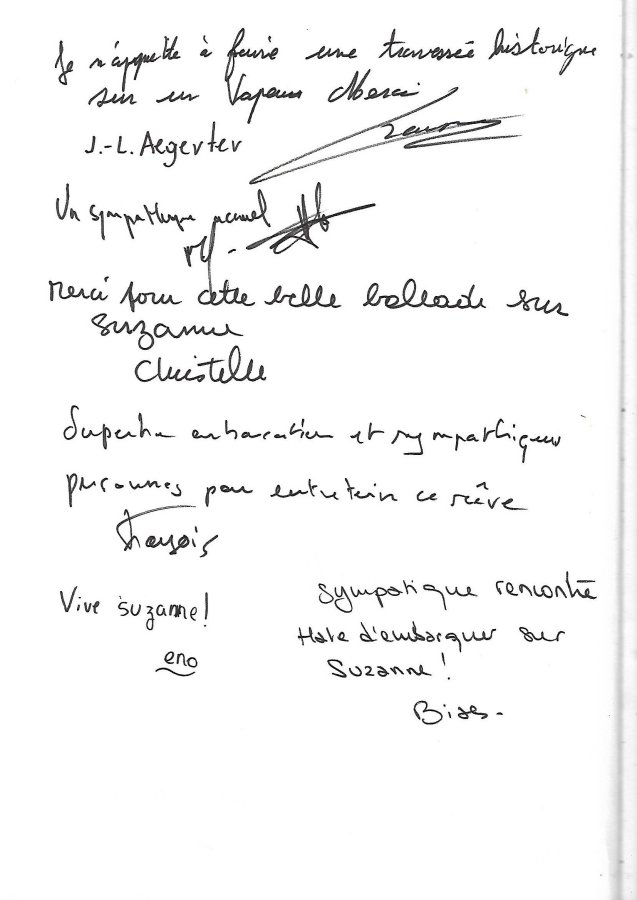 Je m'apprette à faire une traversée historique
sur un Vapeur Merci
J.-L. Aegerter
Un sympathique
Merci pour cette belle ballade sur
Suzanne
Christelle
Superbe embarcation et sympathiques
personnes pour entretein ce rêve
François
Vive suzanne!
eno
Sympatique rencontre
Hate d'embarquer sur
Suzanne!
Bises-